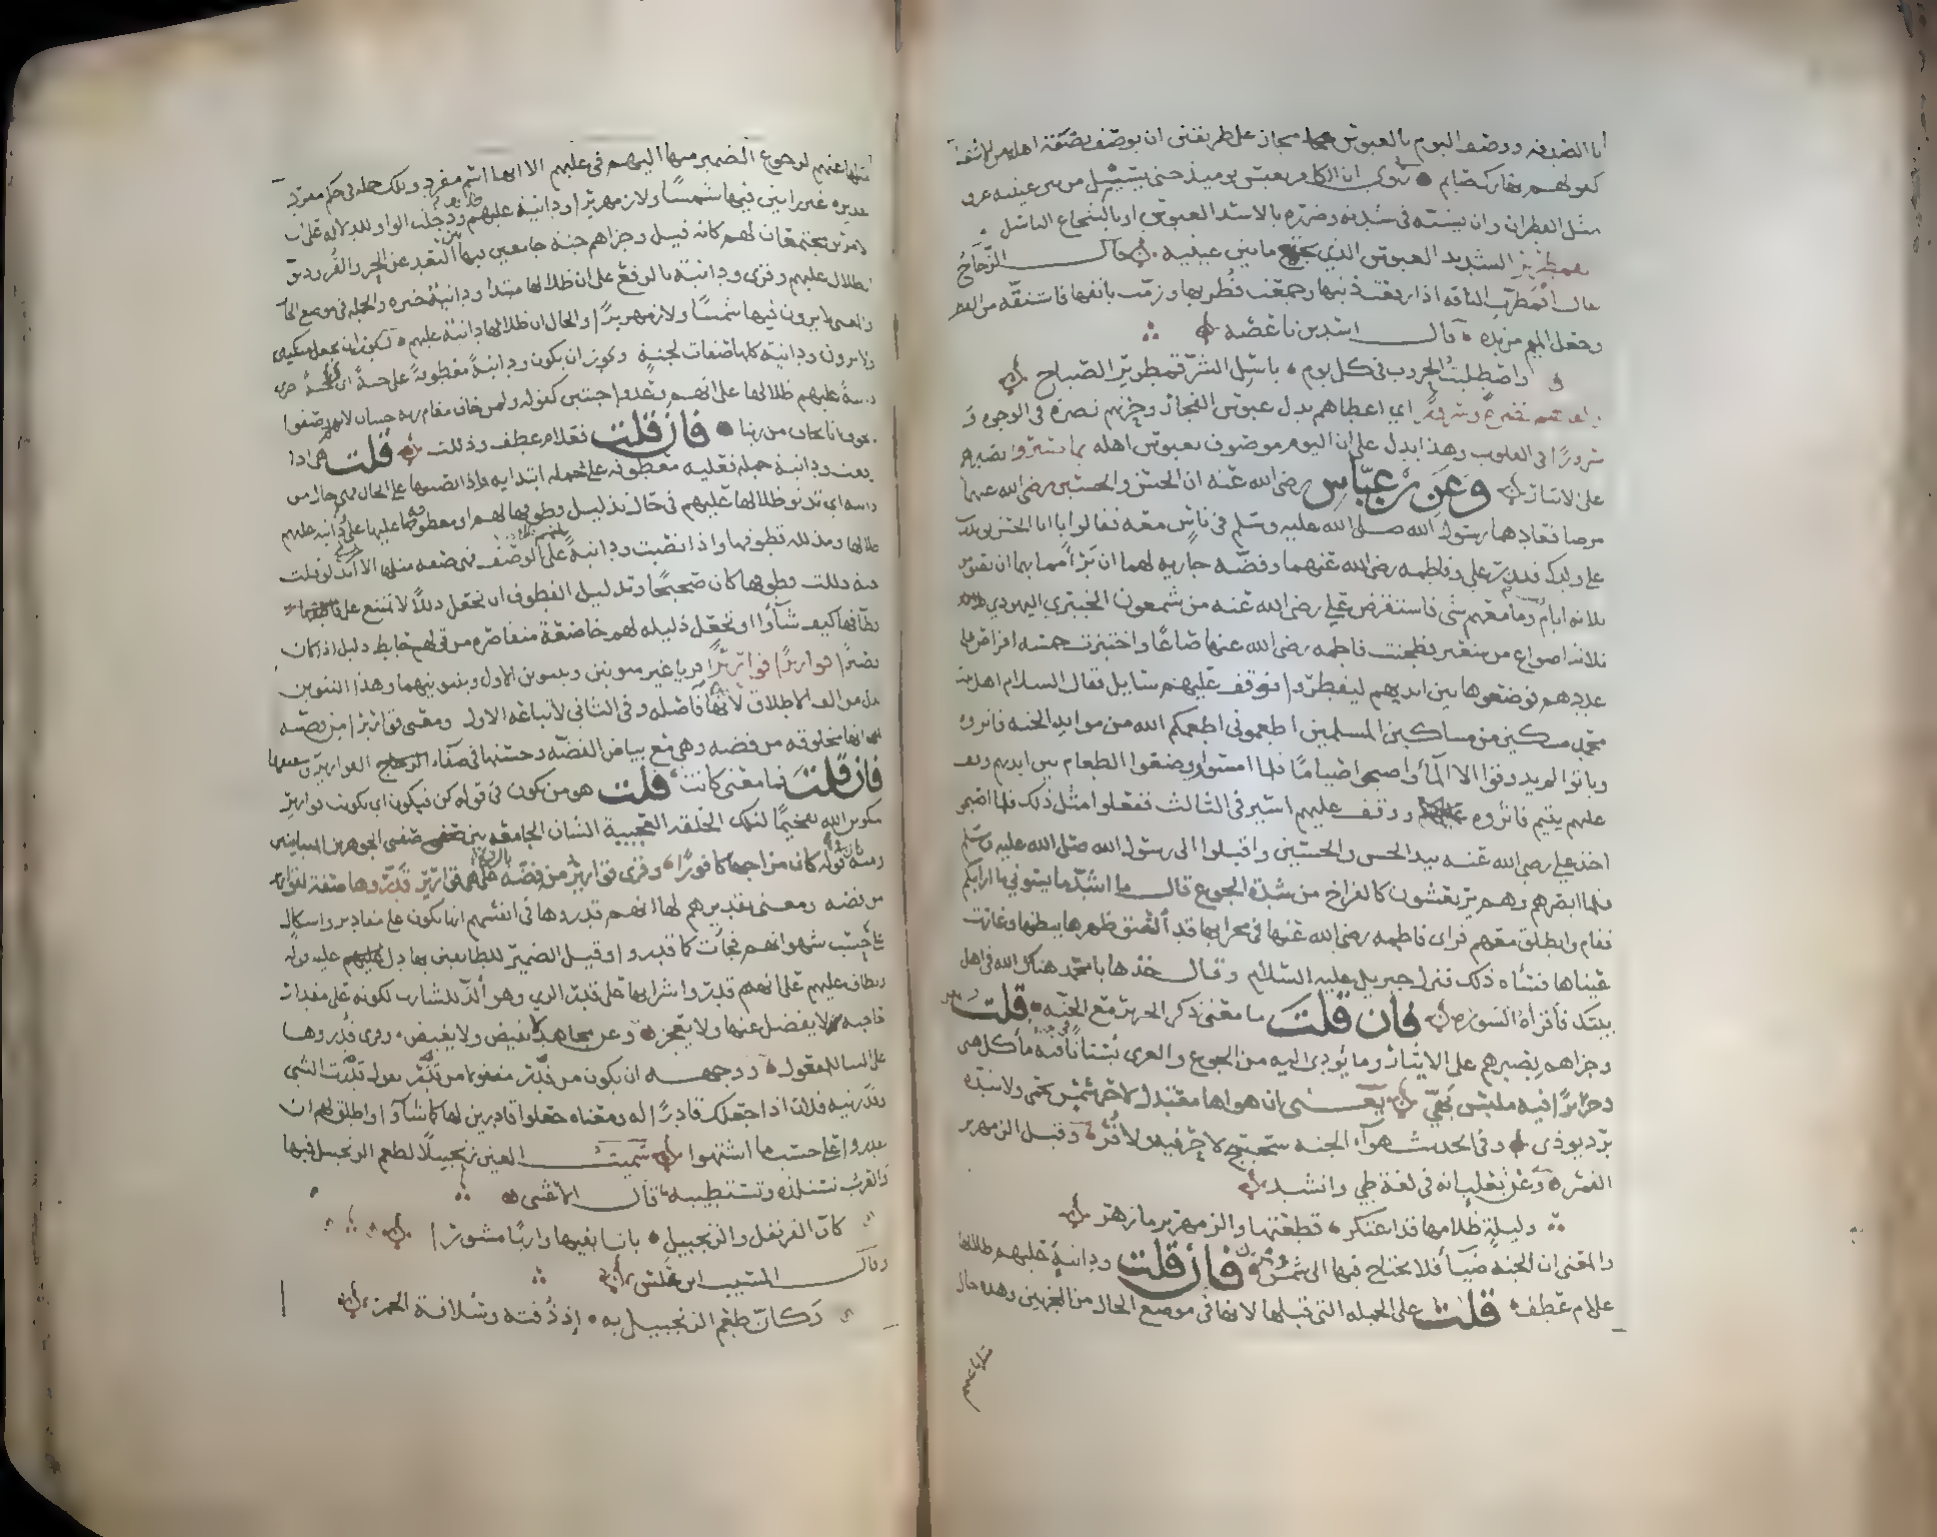 ووصف اليوم بالعبوس مجاز على طريقين ان يوصف بصفة اهله من الاشقيا
كقولهم نهارك صايم روى ان الكافر يعبس يوميذ حتى يسيل من بين عينيه عرق
مثل القطران وان يشبه في شدته وضرره بالاسد العبوس او بالشجاع الباسل
والقمطرير الشديد العبوس الذي يجمع ما بين عينيه قال الزجاج
يقال اقمطرت الناقة اذا رفعت ذنبها وجمعت قطريها وزمت بانفها فاشتقه من القطر
وجعل الميم مزيده قال اسد بن ناعصه
واصطليت الحروب في كل يوم باسل الشر قمطرير الصباح
ولقاهم نضرة وسرورا اي اعطاهم بدل عبوس الفجار وحزنهم نضرة في الوجوه و
سرورا في القلوب وهذا يدل على ان اليوم موصوف بعبوس اهله بما صبروا بصبرهم
على الايثار وعن ابن عباس رضي الله عنه ان الحسن والحسين رضي الله عنهما
مرضا فعادهما رسول الله صلى الله عليه وسلم في ناس معه فقالوا يا ابا الحسن لو نذرت
على ولدك فنذر علي وفاطمه رضي الله عنهما وفضه جاريه لهما ان برآ مما بهما ان يصوموا
ثلاثه ايام وما معهم شي فاستقرض علي رضي الله عنه من شمعون الخيبري اليهودي
ثلاثه اصواع من شعير فطحنت فاطمه رضي الله عنها صاعا واختبزت خمسه اقراص على
عددهم فوضعوها بين ايديهم ليفطروا فوقف عليهم سايل فقال السلام عليكم اهل بيت
محمد مسكين من مساكين المسلمين اطعموني اطعمكم الله من موايد الجنه فاثروه
وباتوا لم يذوقوا الا الماء واصبحوا صياما فلما امسوا ووضعوا الطعام بين ايديهم وقف
عليهم يتيم فاثروه ووقف عليهم اسير في الثالث ففعلوا مثل ذلك فلما اصبحوا
اخذ علي رضي الله عنه بيد الحسن والحسين واقبلوا الى رسول الله صلى الله عليه وسلم
فلما ابصرهم وهم يرتعشون كالفراخ من شدة الجوع قال ما اشد ما يسوني ما ارى بكم
فقام وانطلق معهم فراى فاطمه رضي الله عنها في محرابها قد التصق ظهرها ببطنها وغارت
عيناها فساه ذلك فنزل جبريل عليه السلام وقال خذها يا محمد هناك الله في اهل
بيتك فاقراه السوره فان قلت ما معنى ذكر الحرير مع الجنه قلت
وجزاهم بصبرهم على الايثار وما يودي اليه من الجوع والعري بستانا فيه ماكل هني
وحريرا فيه ملبس بهي يعني ان هواها معتدل لا حر شمس يحمي ولا شده
برد يوذي وفي الحديث هواء الجنه سجسج لا حر فيه ولا قر وقيل الزمهرير
القمر وعن ثعلب انه في لغة طي وانشد
وليلة ظلامها قد اعتكر قطعتها والزمهرير ما زهر
والمعنى ان الجنة ضياء فلا يحتاج فيها الى شمس وقمر فان قلت ودانية عليهم ظلالها
علام عطف قلت على الجمله التي قبلها لانها في موضع الحال من المجزيين وهذه حال
مثلها
مثلها عنهم لرجوع الضمير منها اليهم في عليهم الا انها اسم مفرد وتلك جمله في حكم مفرد
تقديره غير رايين فيها شمسا ولا زمهريرا ودانية عليهم ظلالها ودخلت الواو للدلاله على ان
الامرين مجتمعان لهم كانه قيل وجزاهم جنه جامعين فيها بين البعد عن الحر والقر ودنو
الظلال عليهم وقرى ودانية بالرفع على ان ظلالها مبتدا ودانية خبره والجمله في موضع الحال
والمعنى لا يرون فيها شمسا ولا زمهريرا والحال ان ظلالها دانية عليهم
ولا يرون ودانية كلها صفات لجنة ويجوز ان يكون ودانية معطوفة على جنة اي وجنة اخرى
دانية عليهم ظلالها على انهم وعدوا جنتين كقوله ولمن خاف مقام ربه جنتان لانهم وصفوا
بالخوف انا نخاف من ربنا فان قلت فعلام عطف وذللت قلت هي اذا
رفعت ودانية جمله فعليه معطوفه على جمله ابتدايه واذا نصبتها على الحال فهي حال من
دانيه اي تدنو ظلالها عليهم في حال تذليل قطوفها لهم او معطوفه عليها على ودانيه عليهم
ظلالها ومذلله قطوفها واذا نصبت ودانية على الوصف فهي صفه مثلها الا ترى انك لو قلت
جنه ذللت قطوفها كان صحيحا وتذليل القطوف ان تجعل ذللا لا تمتنع على
قطافها كيف شاؤا او تجعل ذليله لهم خاضعة متقاصره من قولهم حايط ذليل اذا كان
قصيرا قواريرا قواريرا قريا غير منونين وبتنوين الاول وبتنوينهما وهذا التنوين
بدل من الف الاطلاق لانها فاصله وفي الثاني لاتباعه الاول ومعنى قواريرا من فضه
انها مخلوقه من فضه وهي مع بياض الفضه وحسنها في صفاء القوارير وشفيفها
فان قلت فما معنى كانت قلت هو من يكون في قوله كن فيكون اي تكونت قوارير
بتكوين الله تفخيما لتلك الخلقه العجيبية الشان الجامعه بين صفتي الجوهرين المتباينين
ومنه قوله كان مزاجها كافورا وقرى قوارير من فضه بالرفع على هي قوارير قدروها صفة لقوارير
من فضه ومعنى تقديرهم لها انهم قدروها في انفسهم انها تكون على مقادير واشكال
على حسب شهواتهم فجات كما قدروا وقيل الضمير للطايفين بها دل عليهم عليه قوله
ويطاف عليهم على انهم قدروا شرابها على قدر الري وهو الذ للشارب لكونه على مقدار
حاجته لا يفضل عنها ولا يعجز وعن مجاهد لا تفيض ولا تغيض وقرى قدروها
على البنا للمفعول ووجهه ان يكون من قدر منقولا من قدر تقول قدرت الشي
وقدرنيه فلان اذا جعلك قادرا له ومعناه جعلوا قادرين لها كما شاؤا واطلق لهم ان
يقدروا على حسب ما اشتهوا سميت العين زنجبيلا لطعم الزنجبيل فيها
والعرب تستلذه وتستطيبه قال الاعشى
كان القرنفل والزنجبيل باتا بفيها واريا مشورا
وقال المسيب ابن علس
وكان طعم الزنجبيل به اذ ذقته وسلافة الخمر